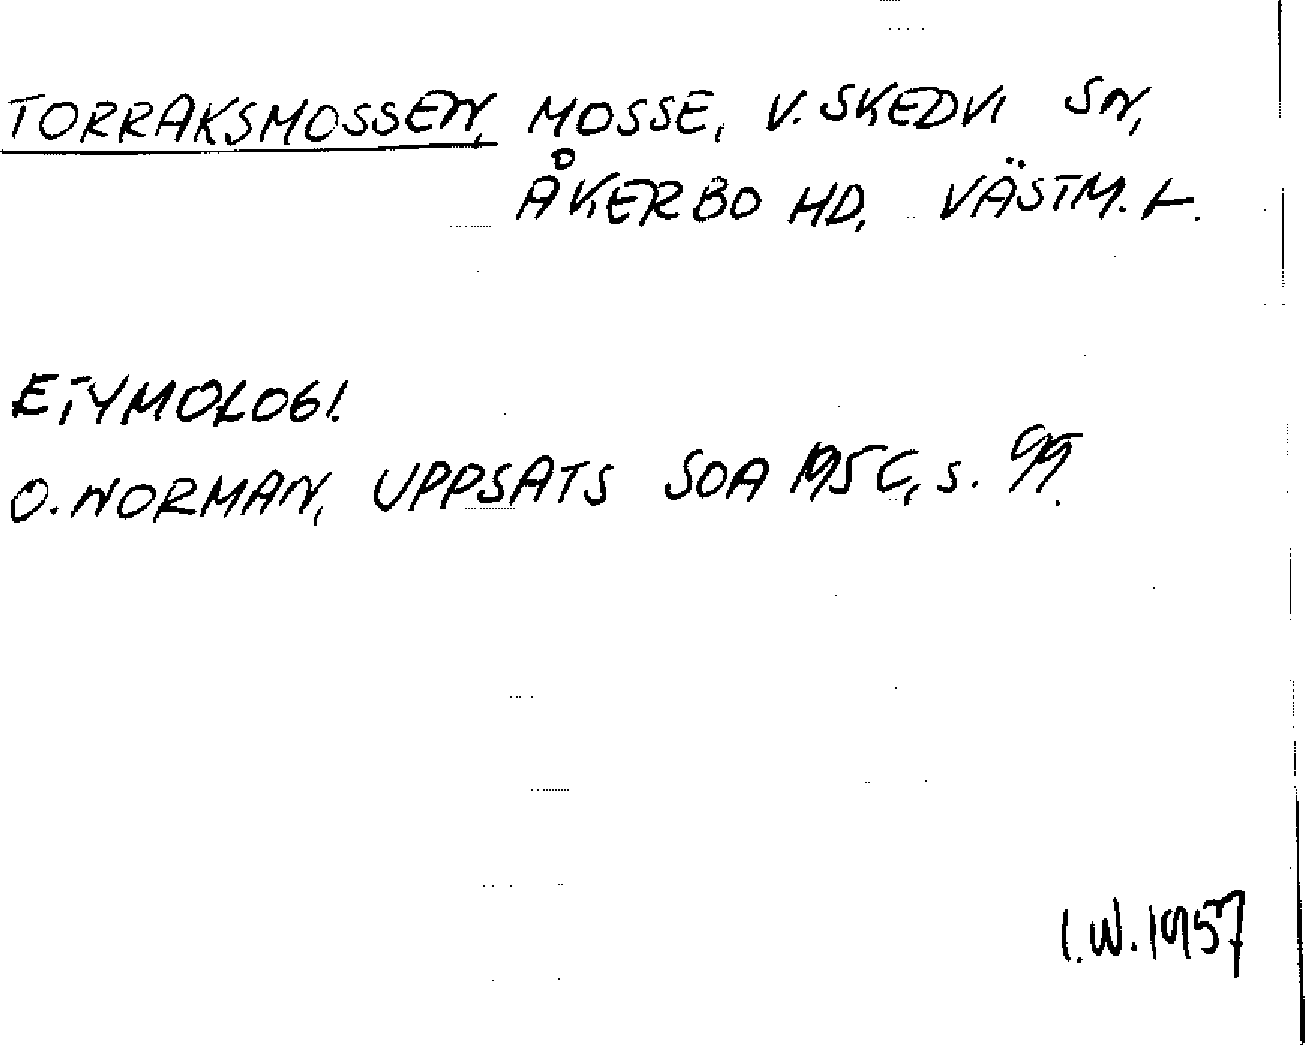 TORRAKSMOSSEN, MOSSE, V. SKEDVI SN,
ÅKERBO HD, VÄSTM. L.
ETYMOLOGI.
O. NORMAN, UPPSATS SOA 1956, s. 99.
I.W. 1957